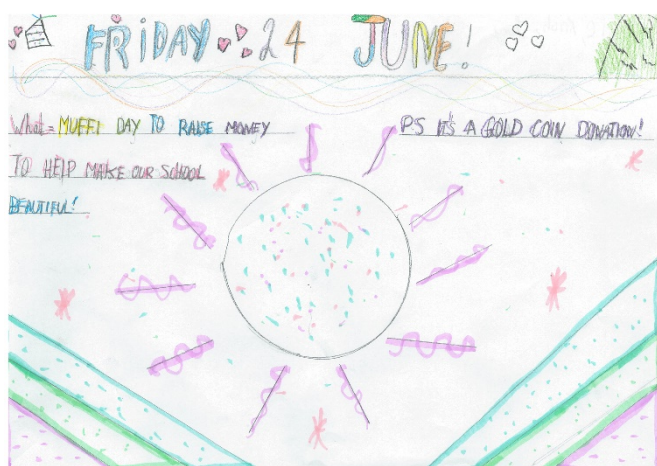 FRIDAY 24 JUNE!
What = MUFFI DAY TO RAISE MONEY
TO HELP MAKE OUR SCHOOL
BEAUTIFUL!
PS IT'S A GOLD COIN DONATION!